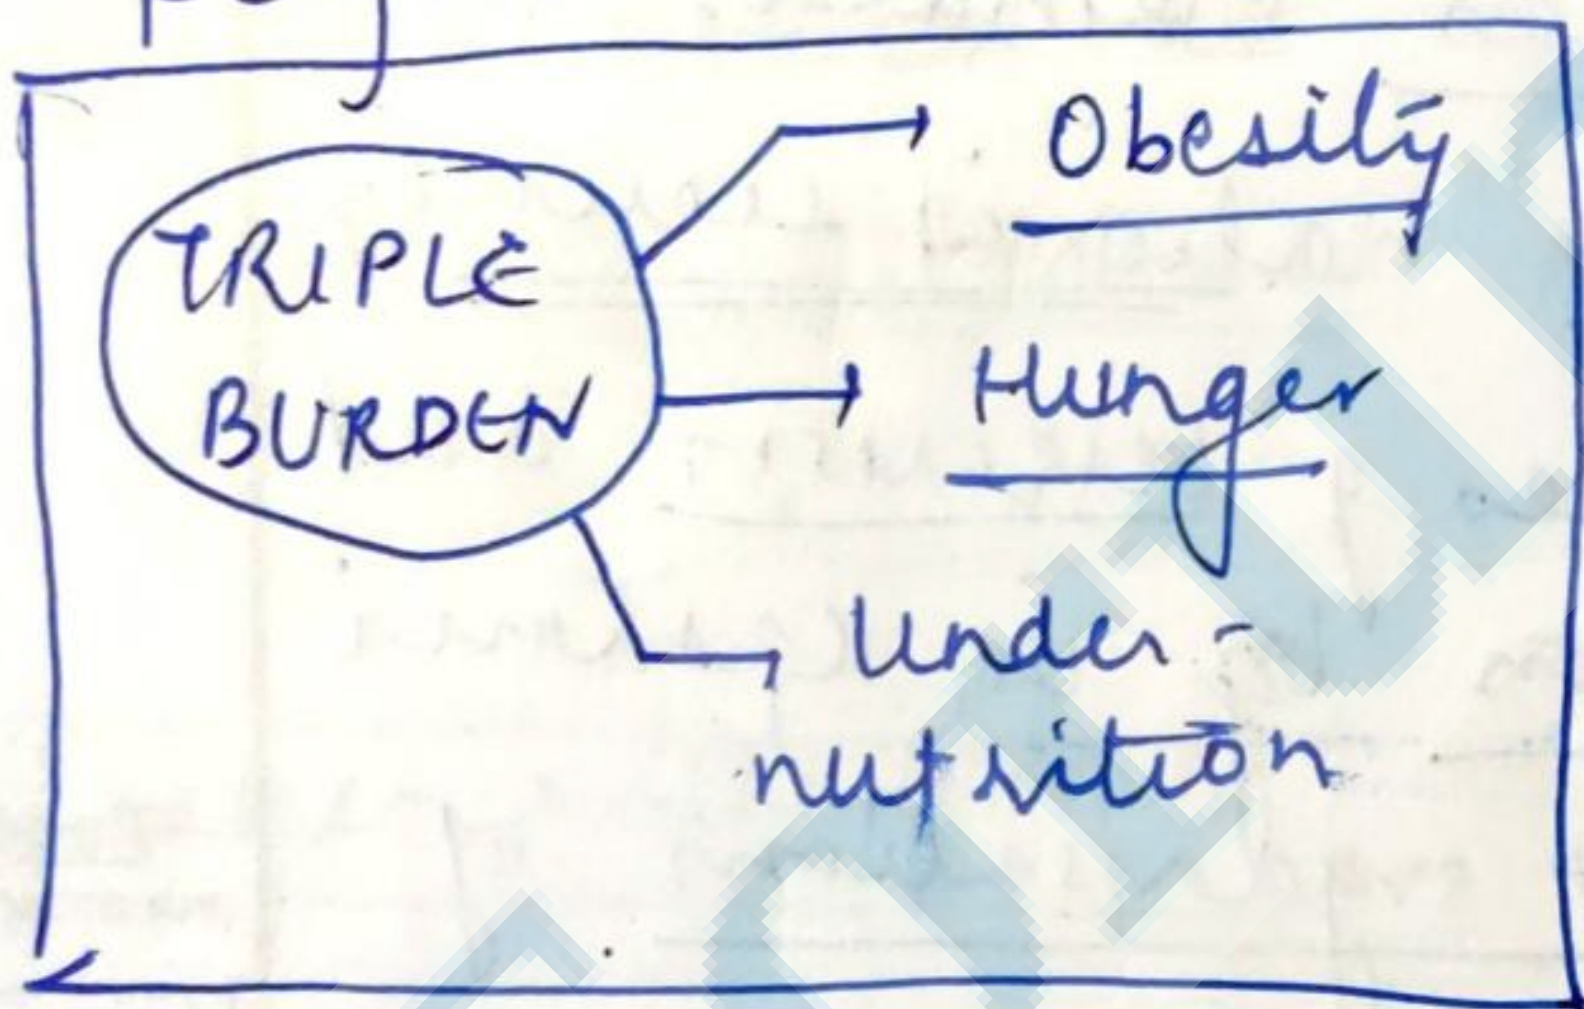 TRIPLE
BURDEN
Obesity
Hunger
Under-
nutrition